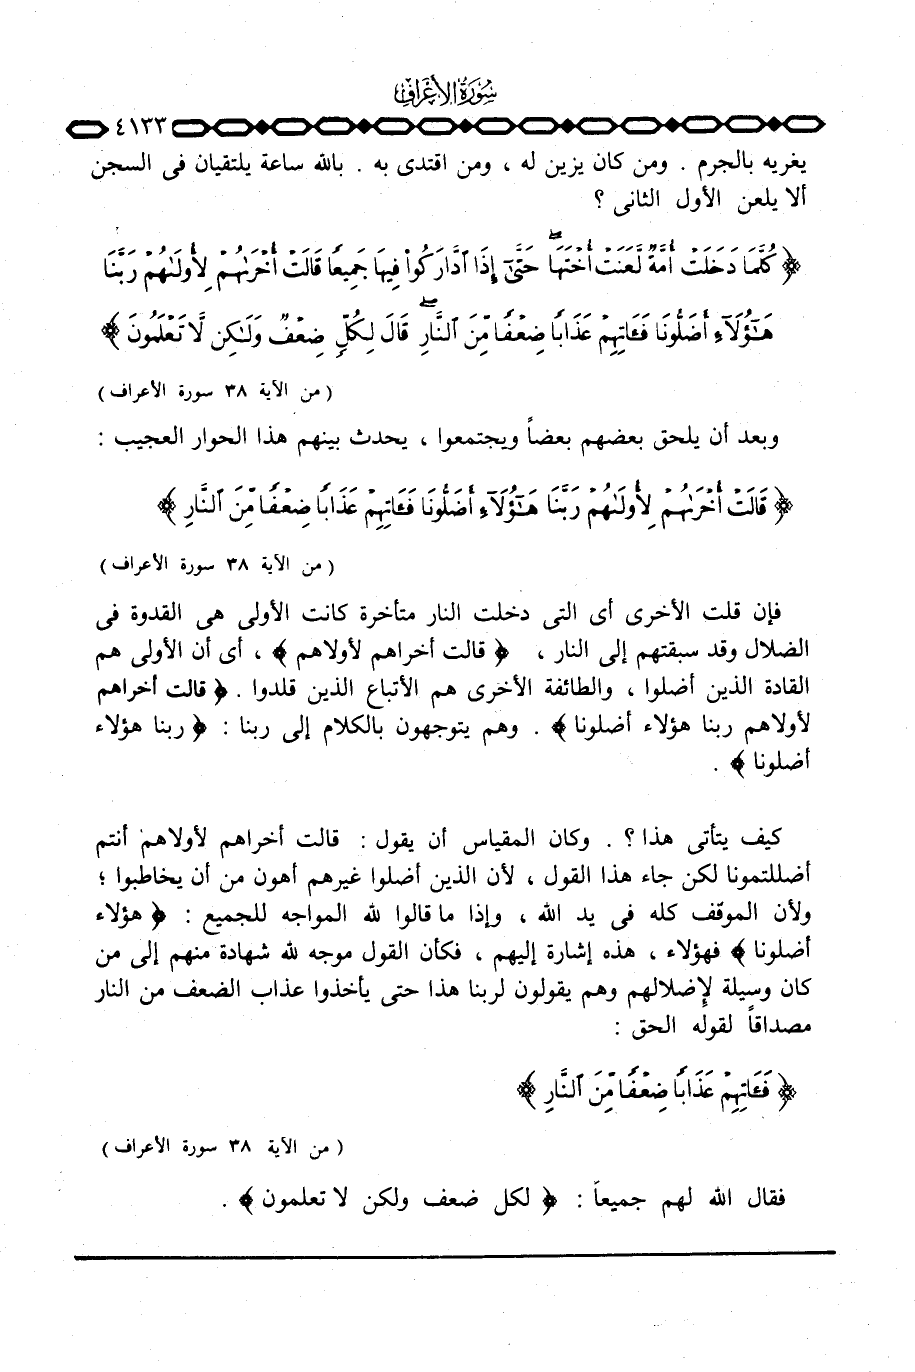 سورة الأعراف
٤١٣٣
يغريه بالجرم . ومن كان يزين له ، ومن اقتدى به . بالله ساعة يلتقيان فى السجن
ألا يلعن الأول الثانى ؟
﴿ كُلَّمَا دَخَلَتْ أُمَّةٌ لَّعَنَتْ أُخْتَهَا ۖ حَتَّىٰٓ إِذَا ٱدَّارَكُوا۟ فِيهَا جَمِيعًا قَالَتْ أُخْرَىٰهُمْ لِأُولَىٰهُمْ رَبَّنَا
هَـٰٓؤُلَآءِ أَضَلُّونَا فَـَٔاتِهِمْ عَذَابًا ضِعْفًا مِّنَ ٱلنَّارِ ۖ قَالَ لِكُلٍّ ضِعْفٌ وَلَـٰكِن لَّا تَعْلَمُونَ ﴾
( من الآية ٣٨ سورة الأعراف )
وبعد أن يلحق بعضهم بعضاً ويجتمعوا ، يحدث بينهم هذا الحوار العجيب :
﴿ قَالَتْ أُخْرَىٰهُمْ لِأُولَىٰهُمْ رَبَّنَا هَـٰٓؤُلَآءِ أَضَلُّونَا فَـَٔاتِهِمْ عَذَابًا ضِعْفًا مِّنَ ٱلنَّارِ ﴾
( من الآية ٣٨ سورة الأعراف )
فإن قلت الأخرى أى التى دخلت النار متأخرة كانت الأولى هى القدوة فى
الضلال وقد سبقتهم إلى النار ، ﴿ قالت أخراهم لأولاهم ﴾ ، أى أن الأولى هم
القادة الذين أضلوا ، والطائفة الأخرى هم الأتباع الذين قلدوا . ﴿ قالت أخراهم
لأولاهم ربنا هؤلاء أضلونا ﴾ . وهم يتوجهون بالكلام إلى ربنا : ﴿ ربنا هؤلاء
أضلونا ﴾ .
كيف يتأتى هذا ؟ . وكان المقياس أن يقول : قالت أخراهم لأولاهم أنتم
أضللتمونا لكن جاء هذا القول ، لأن الذين أضلوا غيرهم أهون من أن يخاطبوا ؛
ولأن الموقف كله فى يد الله ، وإذا ما قالوا لله المواجه للجميع : ﴿ هؤلاء
أضلونا ﴾ فهؤلاء ، هذه إشارة إليهم ، فكأن القول موجه لله شهادة منهم إلى من
كان وسيلة لإضلالهم وهم يقولون لربنا هذا حتى يأخذوا عذاب الضعف من النار
مصداقاً لقوله الحق :
﴿ فَـَٔاتِهِمْ عَذَابًا ضِعْفًا مِّنَ ٱلنَّارِ ﴾
( من الآية ٣٨ سورة الأعراف )
فقال الله لهم جميعاً : ﴿ لكل ضعف ولكن لا تعلمون ﴾ .